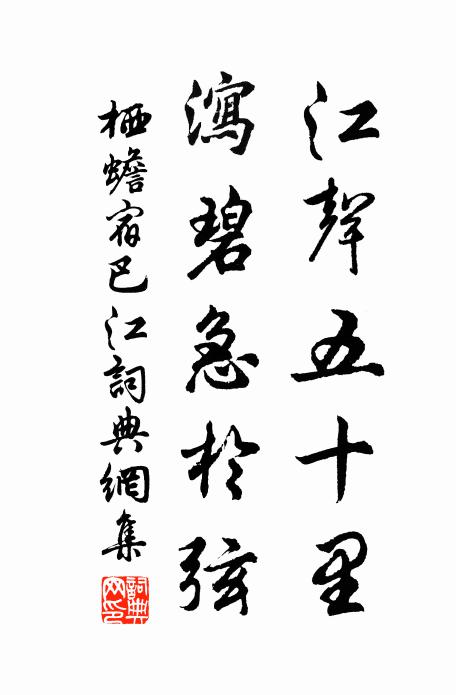 江聲五十里
瀉碧急於弦
栖蟾宿巴江詞典網集
詞典網印